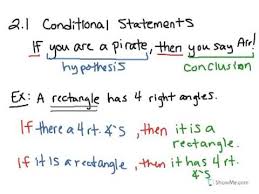 2.1 Conditional Statements
If you are a pirate, then you say Arr!
hypothesis conclusion
Ex: A rectangle has 4 right angles.
If there a 4 rt. ∡'s, then it is a
rectangle.
If it is a rectangle, then it has 4 rt.
∡'s.
ShowMe.com